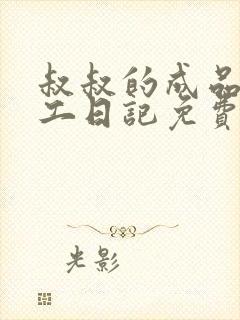 叔叔的成品
工日記免費
光影